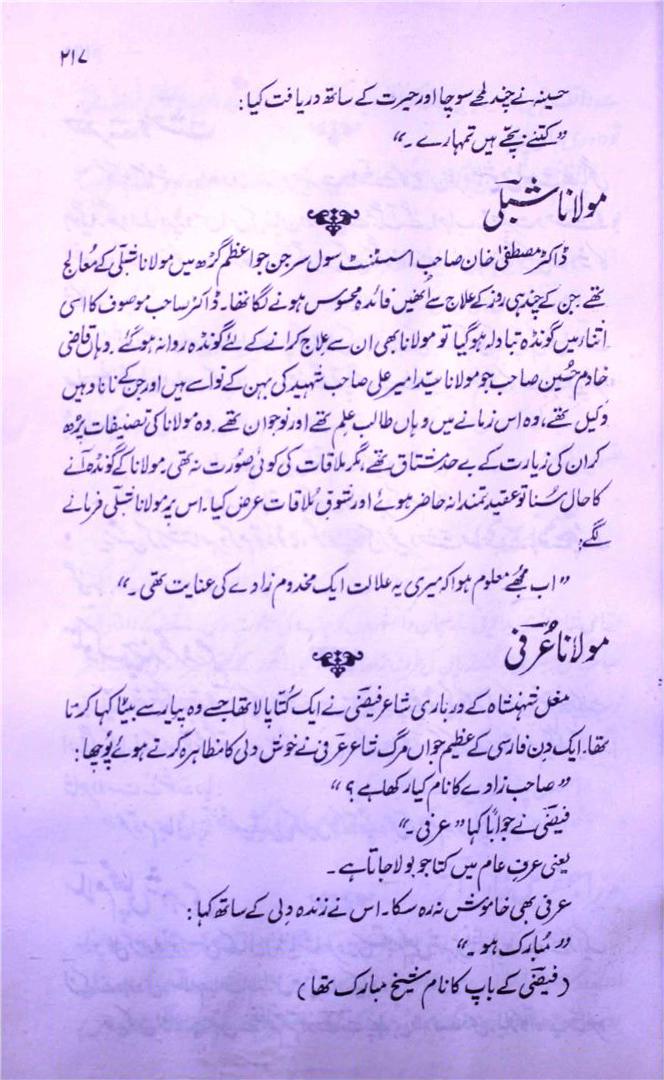 ۲۱۷
حسینہ نے چند لمحے سوچا اور حیرت کے ساتھ دریافت کیا:
”کتنے بچّے ہیں تمہارے۔“
مولانا شبلی
ڈاکٹر مصطفیٰ خان صاحب اسسٹنٹ سول سرجن جو اعظم گڑھ میں مولانا شبلی کے معالج
تھے جن کے چند ہی روز کے علاج سے اُنھیں فائدہ محسوس ہونے لگا تھا۔ ڈاکٹر صاحب موصوف کا اسی
اثنار میں گونڈہ تبادلہ ہو گیا تو مولانا بھی ان سے علاج کرانے کے لئے گونڈہ روانہ ہو گئے۔ وہاں قاضی
خادم حُسین صاحب جو مولانا سیّد امیر علی صاحب شہید کی بہن کے نواسے ہیں اور جن کے نانا وہیں
وکیل تھے، وہ اس زمانے میں وہاں طالب علم تھے اور نوجوان تھے۔ وہ مولانا کی تصنیفات پڑھ
کر ان کی زیارت کے بے حد مشتاق تھے، مگر ملاقات کی کوئی صورت نہ تھی۔ مولانا کے گونڈہ آنے
کا حال سُنا تو عقیدتمندانہ حاضر ہوئے اور شوقِ مُلاقات عرض کیا۔ اس پر مولانا شبلی فرمانے
لگے:
”اب مجھے معلوم ہوا کہ میری یہ علالت ایک مخدوم زادے کی عنایت تھی۔“
مولانا عُرفی
مغل شہنشاہ کے درباری شاعر فیضی نے ایک کُتّا پالا تھا جسے وہ پیار سے بیٹا کہا کرتا
تھا۔ ایک دن فارسی کے عظیم جواں مرگ شاعر عرفی نے خوش دلی کا مظاہرہ کرتے ہوئے پُوچھا:
”صاحب زادے کا نام کیا رکھا ہے؟“
فیضی نے جواباً کہا ”عرفی۔“
یعنی عرفِ عام میں کتا جو بولا جاتا ہے۔
عرفی بھی خاموش نہ رہ سکا۔ اس نے زندہ دِلی کے ساتھ کہا:
”مُبارک ہو۔“
(فیضی کے باپ کا نام شیخ مبارک تھا)